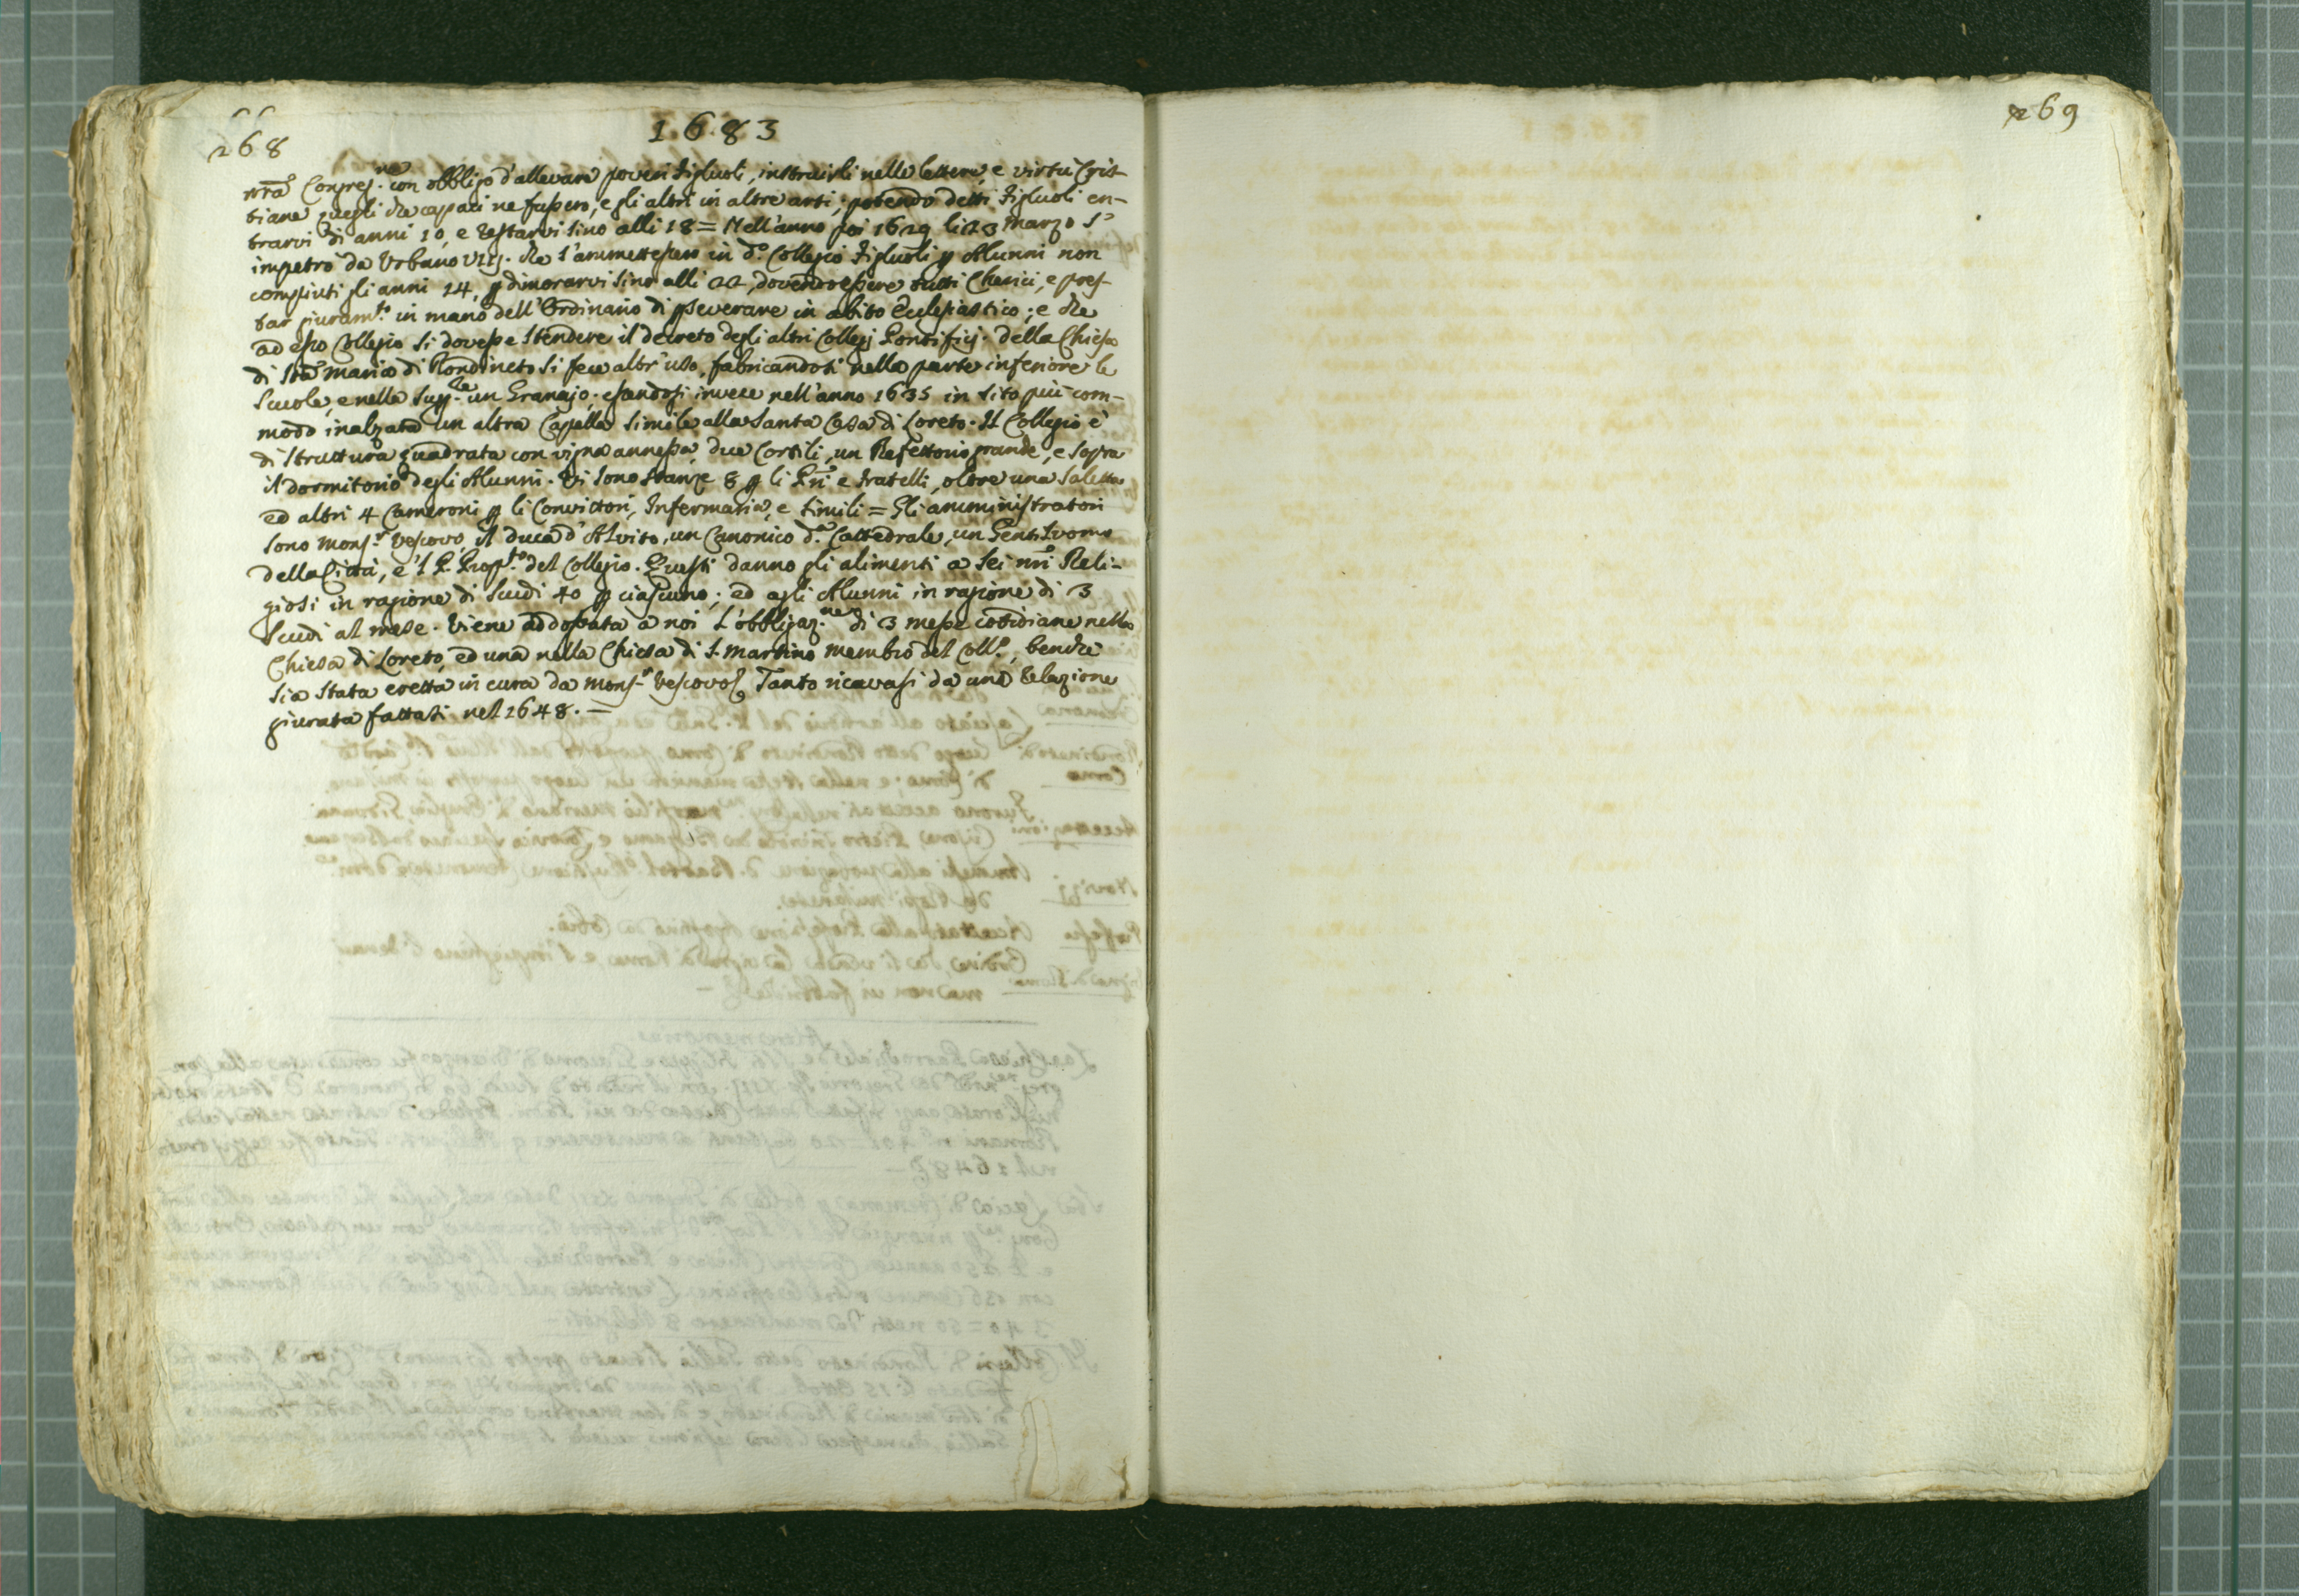 268
1683
nrã Congreg.ne con obbligo d'allevare poveri figluoli, instruirli nelle lettere, e virtù Cris-
tiane quegli che capaci ne fussero, e gli altri in altre arti; potendo detti figluoli en-
trarvi di anni 10, e restarvi sino alli 18 = Nell'anno poi 1629 li 23 Marzo s'
impetrò da Urbano VIIJ. che s'ammettessero in d.º Collegio figluoli p Alunni non
compiuti gli anni 14, p dimorarvi sino alli 22, dovendo essere tutti Cherici, e pres-
tar giuram.to in mano dell'Ordinario di pseverare in abito Ecclesiastico; e che
ad esso Collegio si dovesse stendere il decreto degli altri Collegj Pontificij. Della Chiesa
di Sta Maria di Rondineto si fece altr'uso, fabricandosi nella parte inferiore le
Scuole, e nella Sup.re un Granajo; essendosi invece nell'anno 1635 in sito più com-
modo inalzata un altra Capella simile alla Santa Casa di Loreto. Il Collegio è
di struttura quadrata con vigna annessa, due Cortili, un Refettorio grande, e sopra
il dormitorio degli Alunni. Vi sono stanze 8 p li Pri e fratelli, oltre una saletta
ed altri 4 Cameroni p li Convittori, Infermaria, e simili = Gli amministratori
sono Mons.r Vescovo il Duca d'Alvito, un Canonico d.a Cattedrale, un Gentiluomo
della Città, e 'l P. Prop.to del Collegio. Questi danno gli alimenti a sei nri Reli-
giosi in ragione di scudi 40 p ciascuno; ed agli Alunni in ragione di 3
scudi al mese. Viene addossata a noi l'obbligaz.ne di 3 messe cotidiane nella
Chiesa di Loreto, ed una nella Chiesa di S. Martino membro del Coll.º, benchè
sia stata eretta in cura da Mons.r Vescovo. Tanto ricavasi da una Relazione
giurata fattasi nel 1648. —
269